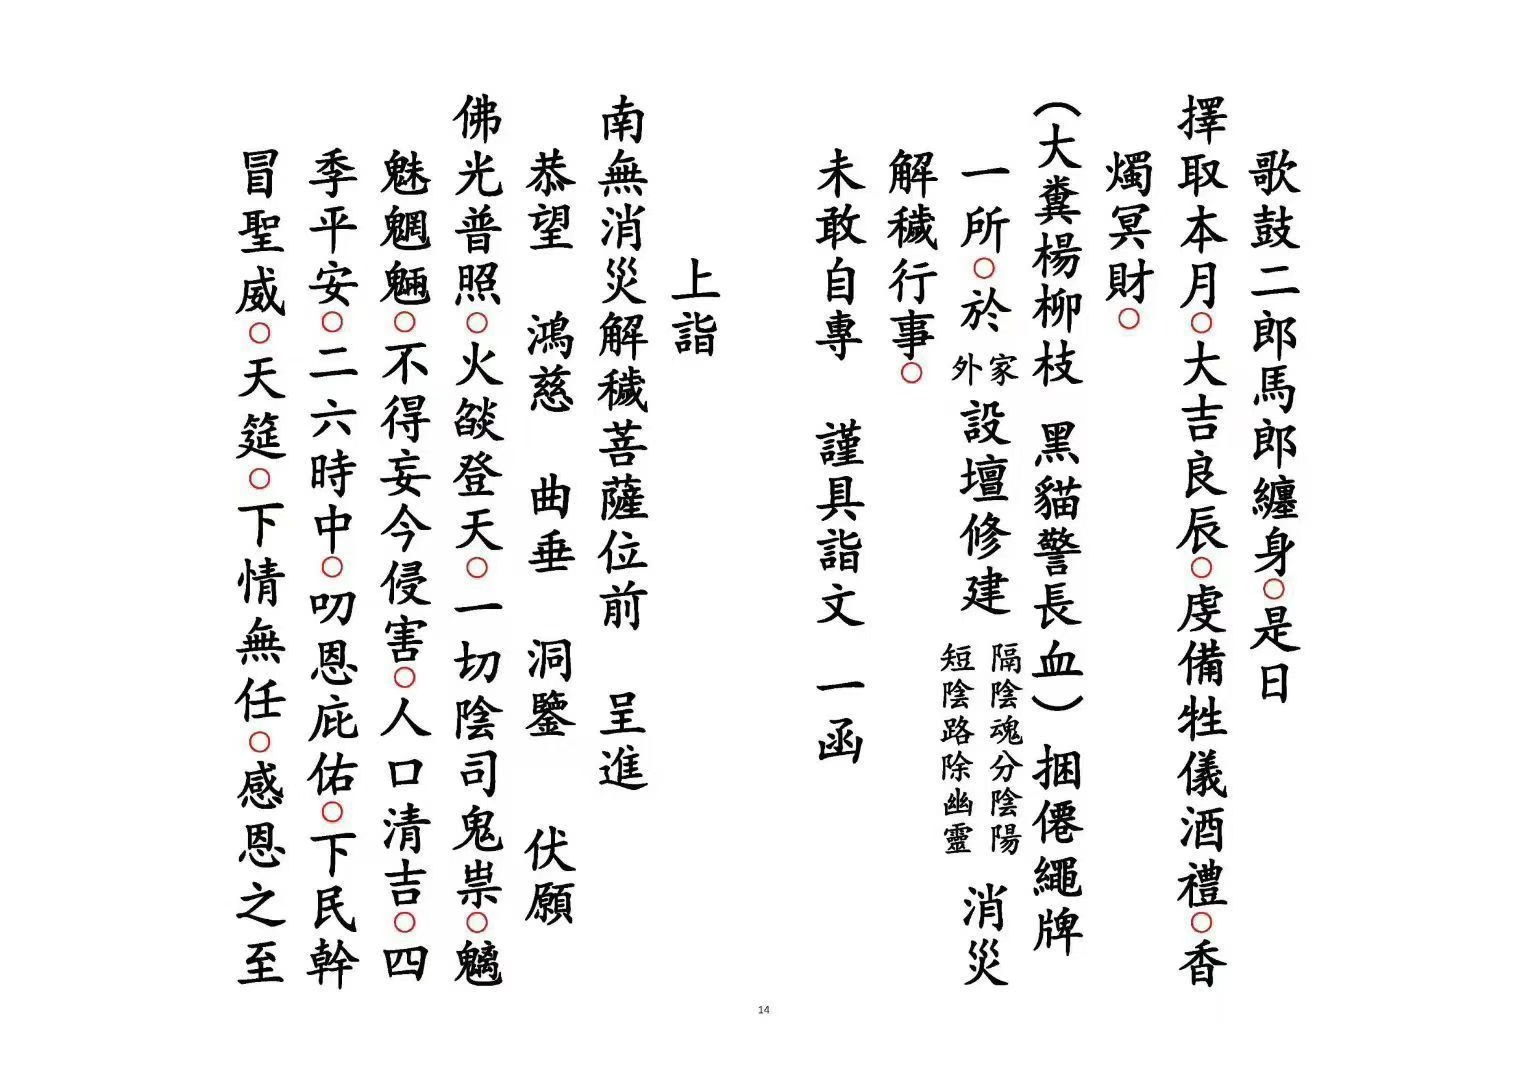 歌鼓二郎馬郎纏身○是日
擇取本月○大吉良辰○虔備牲儀酒禮○香
燭冥財○
（大糞楊柳枝 黑貓警長血）捆僊繩牌
一所○於 家外 設壇修建 隔陰魂分陰陽 短陰路除幽靈 消災
解穢行事○
未敢自專 謹具詣文 一函
上詣
南無消災解穢菩薩位前 呈進
恭望 鴻慈 曲垂 洞鑒 伏願
佛光普照○火燄登天○一切陰司鬼祟○魑
魅魍魎○不得妄今侵害○人口清吉○四
季平安○二六時中○叨恩庇佑○下民幹
冒聖威○天筵○下情無任○感恩之至
14